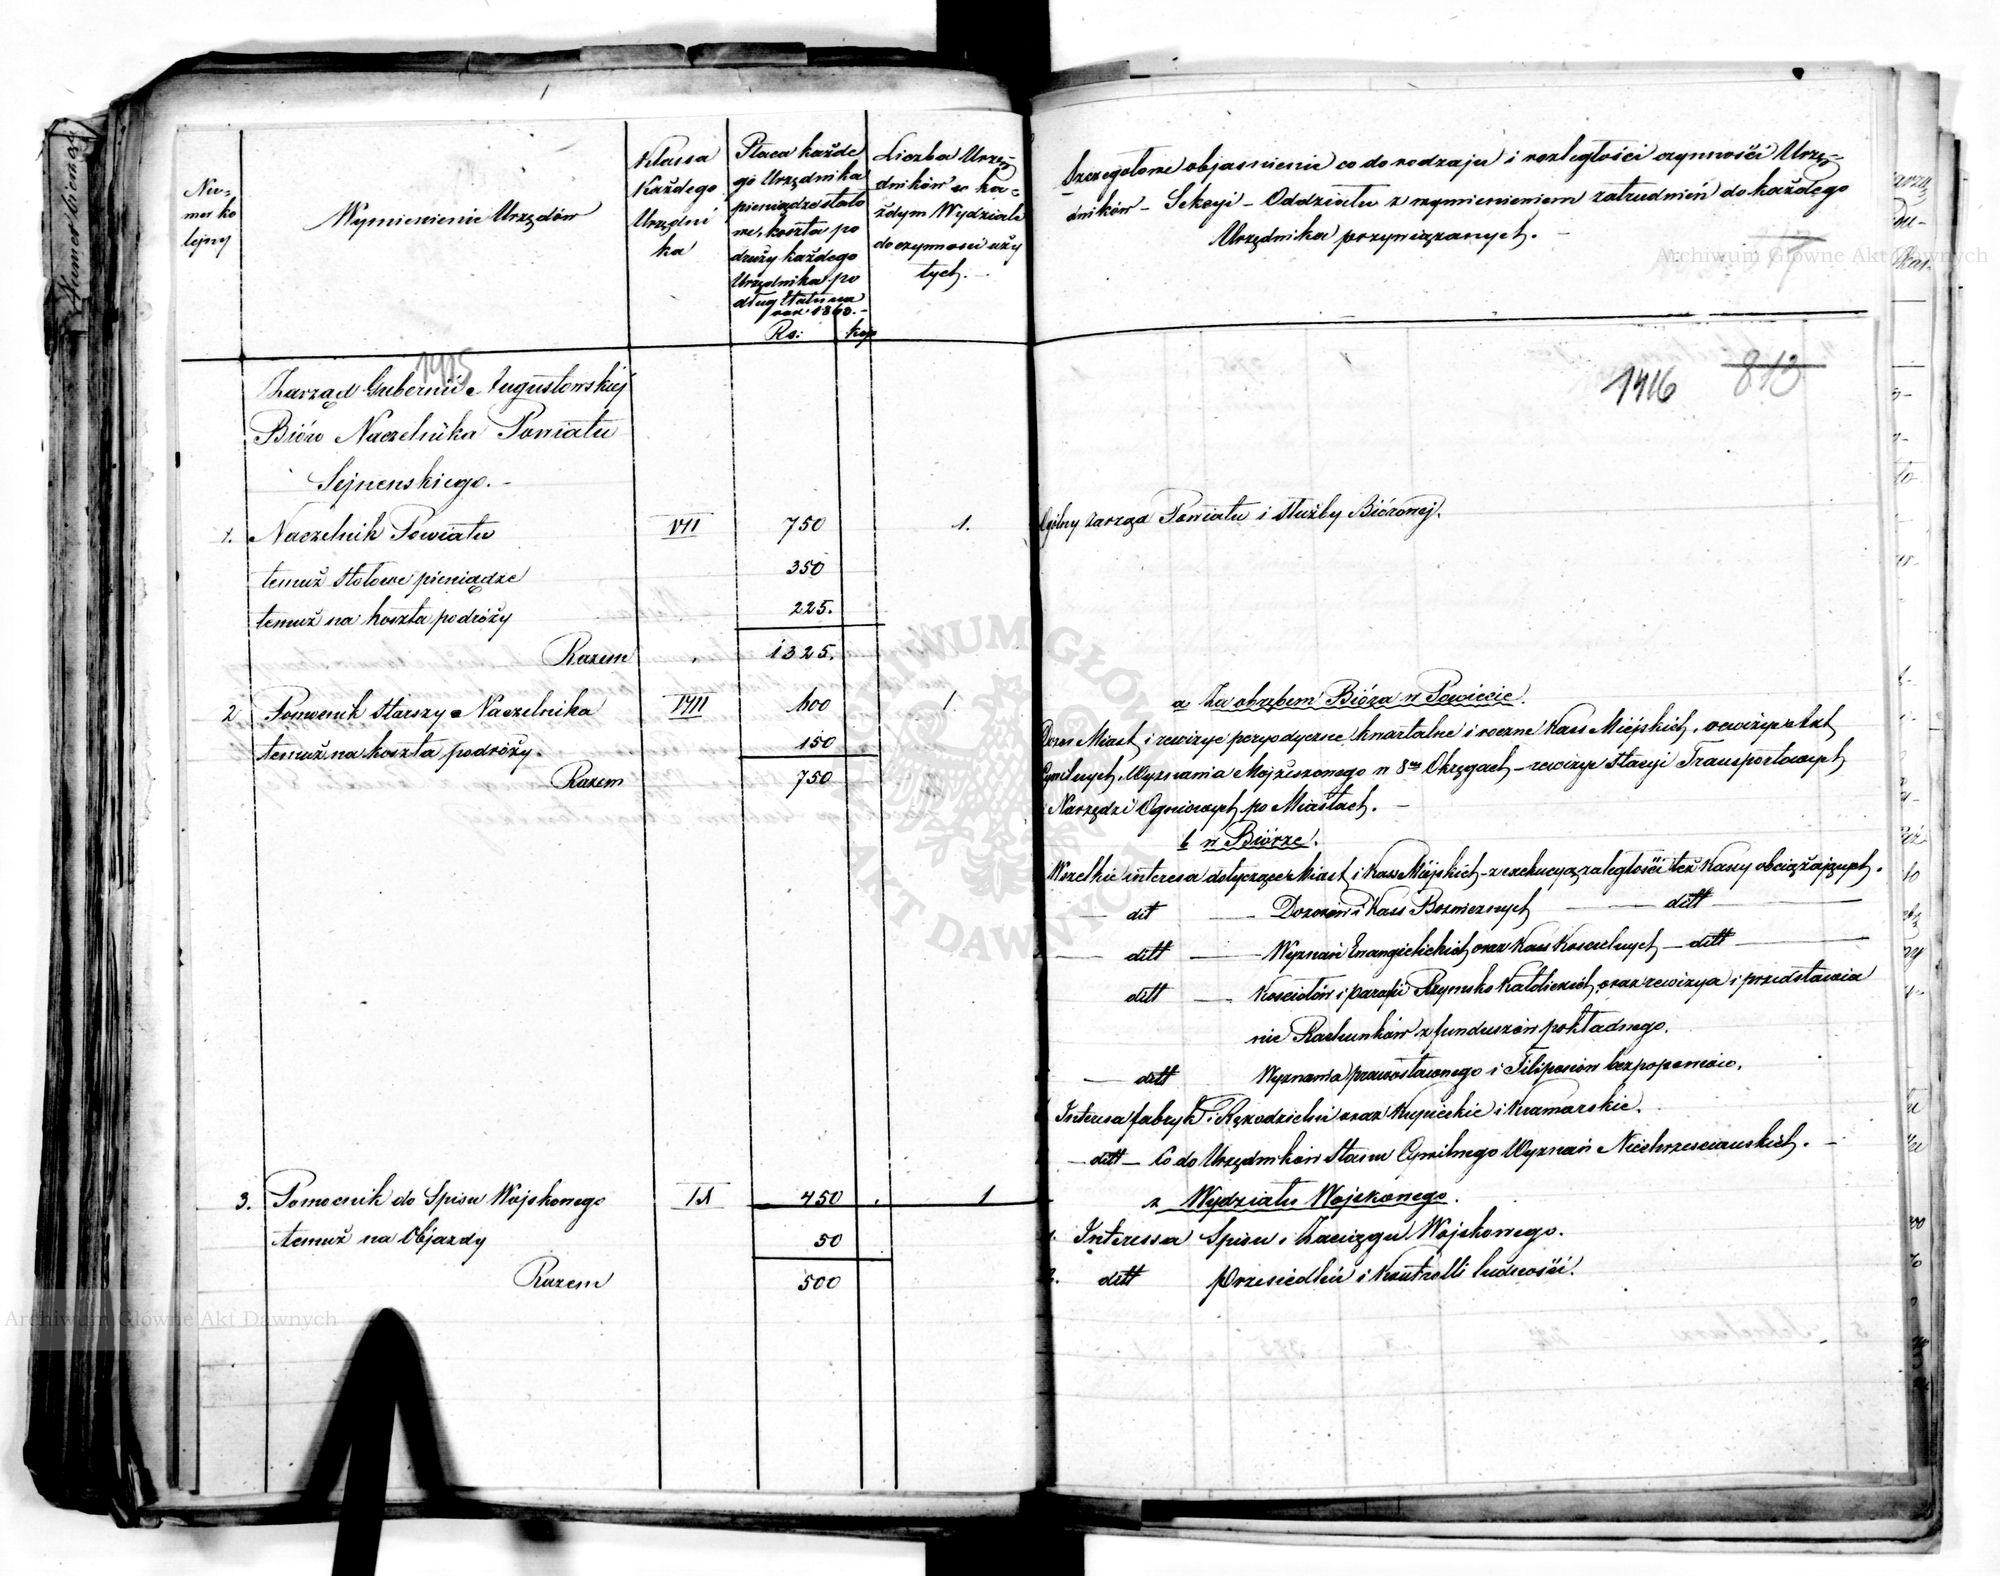 Numer bieżący
Nu-
mer ko
lejny
Wymienienie Urzędów
Klassa
Każdego
Urzędni
ka
Płaca każde
go Urzędnika
pieniądze stoło
we, koszta po
dróży każdego
Urzędnika po
dług Etatu na
rok 1860. -
Rs: kop
Liczba Urzę-
dników w ka-
żdym Wydziale
do czynności uży
tych. -
1415
Zarząd Gubernii Augustowskiej
Bióro Naczelnika Powiatu
Sejnenskiego. -
1. Naczelnik Powiatu VII 750 1.
temuż stołowe pieniądze 350
temuż na koszta podróży 225.
Razem 1325.
2 Pomocnik Starszy Naczelnika VIII 600 1
temuż na koszta podróży. 150
Razem 750
3. Pomocnik do Spisu Wojskowego IX 450 1
temuż na Objazdy 50
Razem 500
Szczegółowe objaśnienie co do rodzaju i rozległości czynności Urzę-
dników - Sekcyi - Oddziału z wymienieniem zatrudnień do każdego
Urzędnika przywiązanych. -
1416 813
Ogólny zarząd Powiatu i służby Biórowej.
a Za obrębem Bióra w Powiecie.
Dozór Miast i rewizye peryodyczne kwartalne i roczne Kass Miejskich, rewizye Akt
Cywilnych Wyznania Mojżeszowego w 8miu Okręgach - rewizye Stacyi Transportowych
Narzędzi Ogniowych po Miastach. -
b w Biórze.
Wszelkie interesa dotyczące Miast i Kass Miejskich - z exekucyą zaległości też Kassy obciążających.
— dit — Dozorów i Kass Bożniczych — ditt —
— ditt — Wyznań Ewangielickich oraz Kass Kościelnych — ditt —
ditt — Kościołów i parafii Rzymsko Katolickich, oraz rewizya i przedstawia
nie Rachunków z funduszów pokładnego.
— ditt Wyznania prawosławnego i Filiponów bezpopowców.
Interesa fabryk i Rękodzielni oraz Kupieckie i Kramarskie.
— ditt — Co do Urzędników Stanu Cywilnego Wyznań Niechrzesciauskich. -
z Wydziału Wojskowego.
1. Interessa Spisu i Zaciągu Wojskowego.
2. ditt przesiedleń i Kontrolli ludności.
Archiwum Główne Akt Dawnych
Archiwum Główne Akt Dawnych
ARCHIWUM GŁÓWNE
AKT DAWNYCH